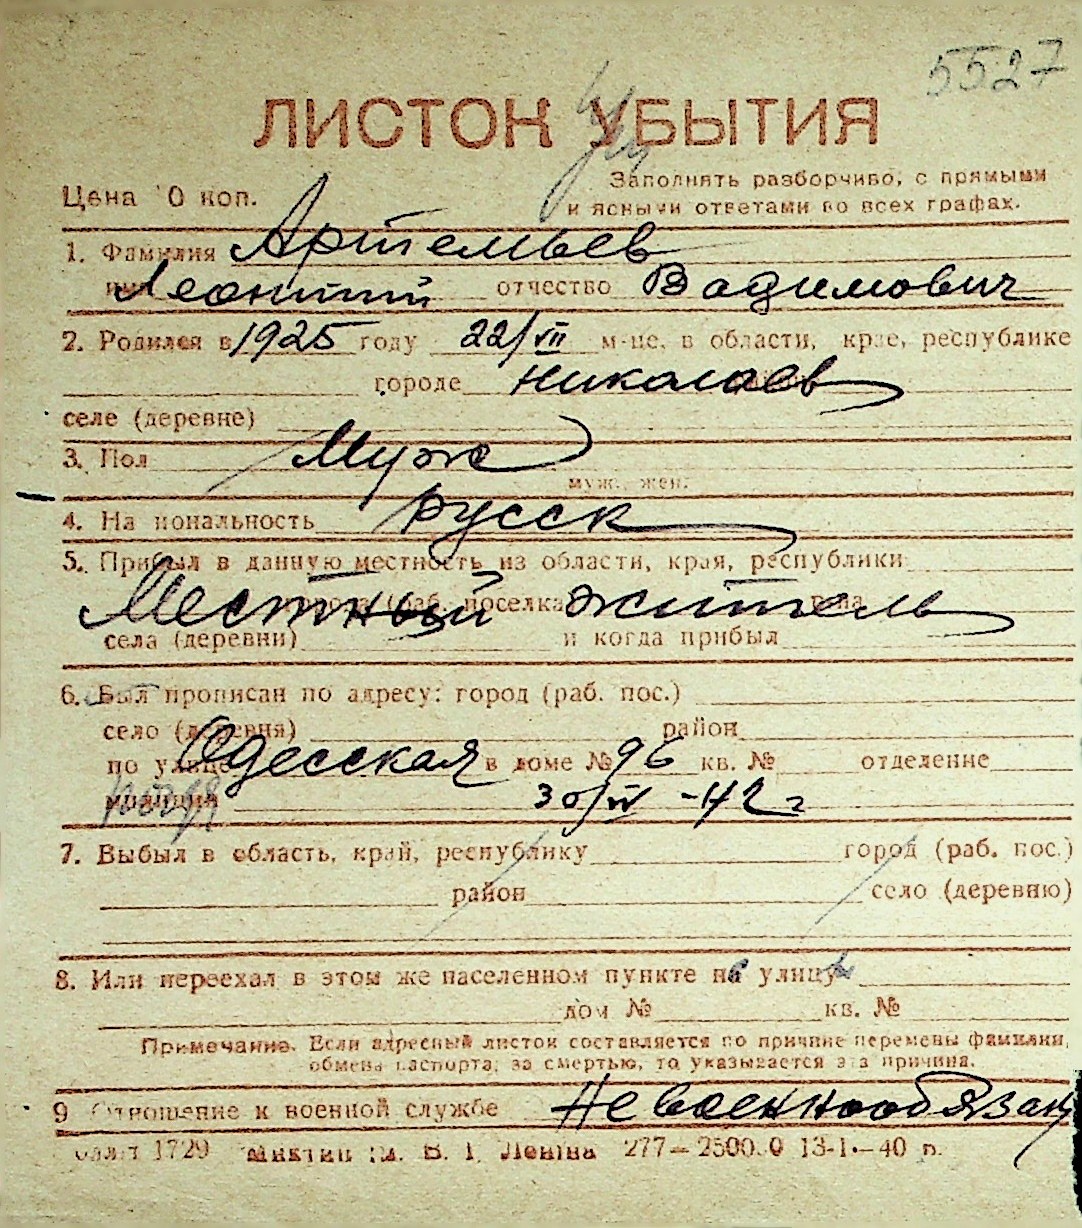 5527
ЛИСТОК УБЫТИЯ
Цена 10 коп.
Заполнять разборчиво, с прямыми
и ясными ответами во всех графах.
1. Фамилия Артемьев
имя Леонтий отчество Вадимович
2. Родился в 1925 году 22/VII м-це, в области, крае, республике
городе Николаев
селе (деревне)
3. Пол Муж
муж. жен.
4. Национальность русск
5. Прибыл в данную местность из области, края, республики
Местный житель
города (раб. поселка) района
села (деревни) и когда прибыл
6. Был прописан по адресу: город (раб. пос.)
село (деревня) район
по улице Одесская в доме № 96 кв. № отделение
милиции 30/IV -42 г
7. Выбыл в область, край, республику город (раб. пос.)
район село (деревню)
8. Или переехал в этом же населенном пункте на улицу
дом № кв. №
Примечание. Если адресный листок составляется по причине перемены фамилии,
обмена паспорта, за смертью, то указывается эта причина.
9 Отношение к военной службе Невоеннообязан
1729 им. В. І. Леніна 277—25000 13-1.—40 р.